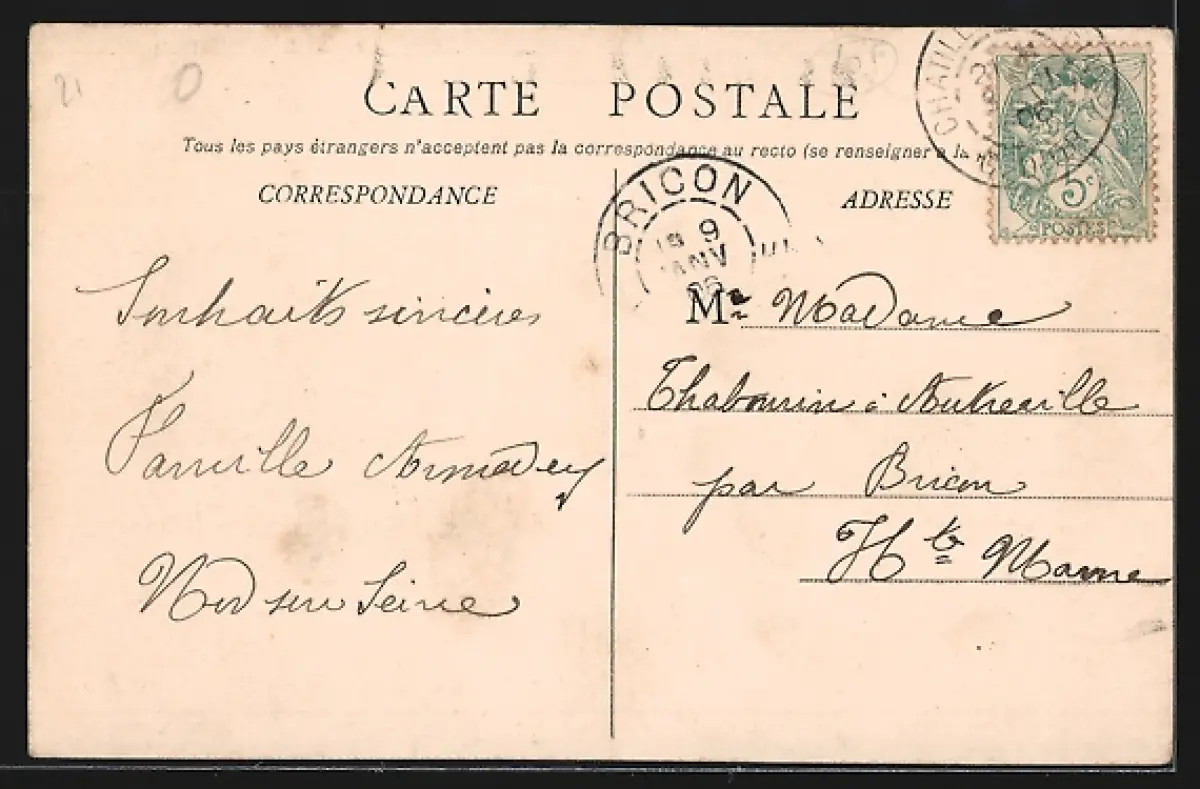 21
CARTE POSTALE
Tous les pays étrangers n'acceptent pas la correspondance au recto (se renseigner à la
CORRESPONDANCE
ADRESSE
CHATILL
5c
POSTES
BRICON
9
JANV
06
Souhaits sincères
Famille
Nod sur Seine
Mr Madame
Thabourin à Autreville
par Bricon
Hte Marne